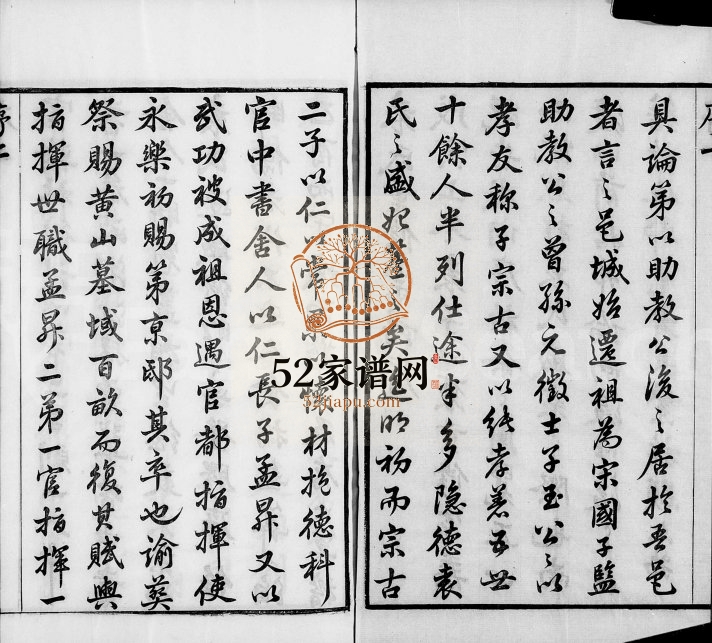 序一
具論第以助教公後之居於吾邑
者言之邑城始遷祖為宋國子監
助教公之曾孫元徵士子玉公之以
孝友称子宗古又以純孝著五世
十餘人半列仕途半多隐德袁
氏之盛矣明初而宗古
二子以仁以常材抱德科
官中書舍人以仁長子孟昇又以
武功被成祖恩遇官都指揮使
永樂初賜第京邸其卒也諭葬
祭賜黄山墓域百畝而復其賦與
指揮世職孟昇二弟一官指揮一
序二
52家谱网
52jiapu.com